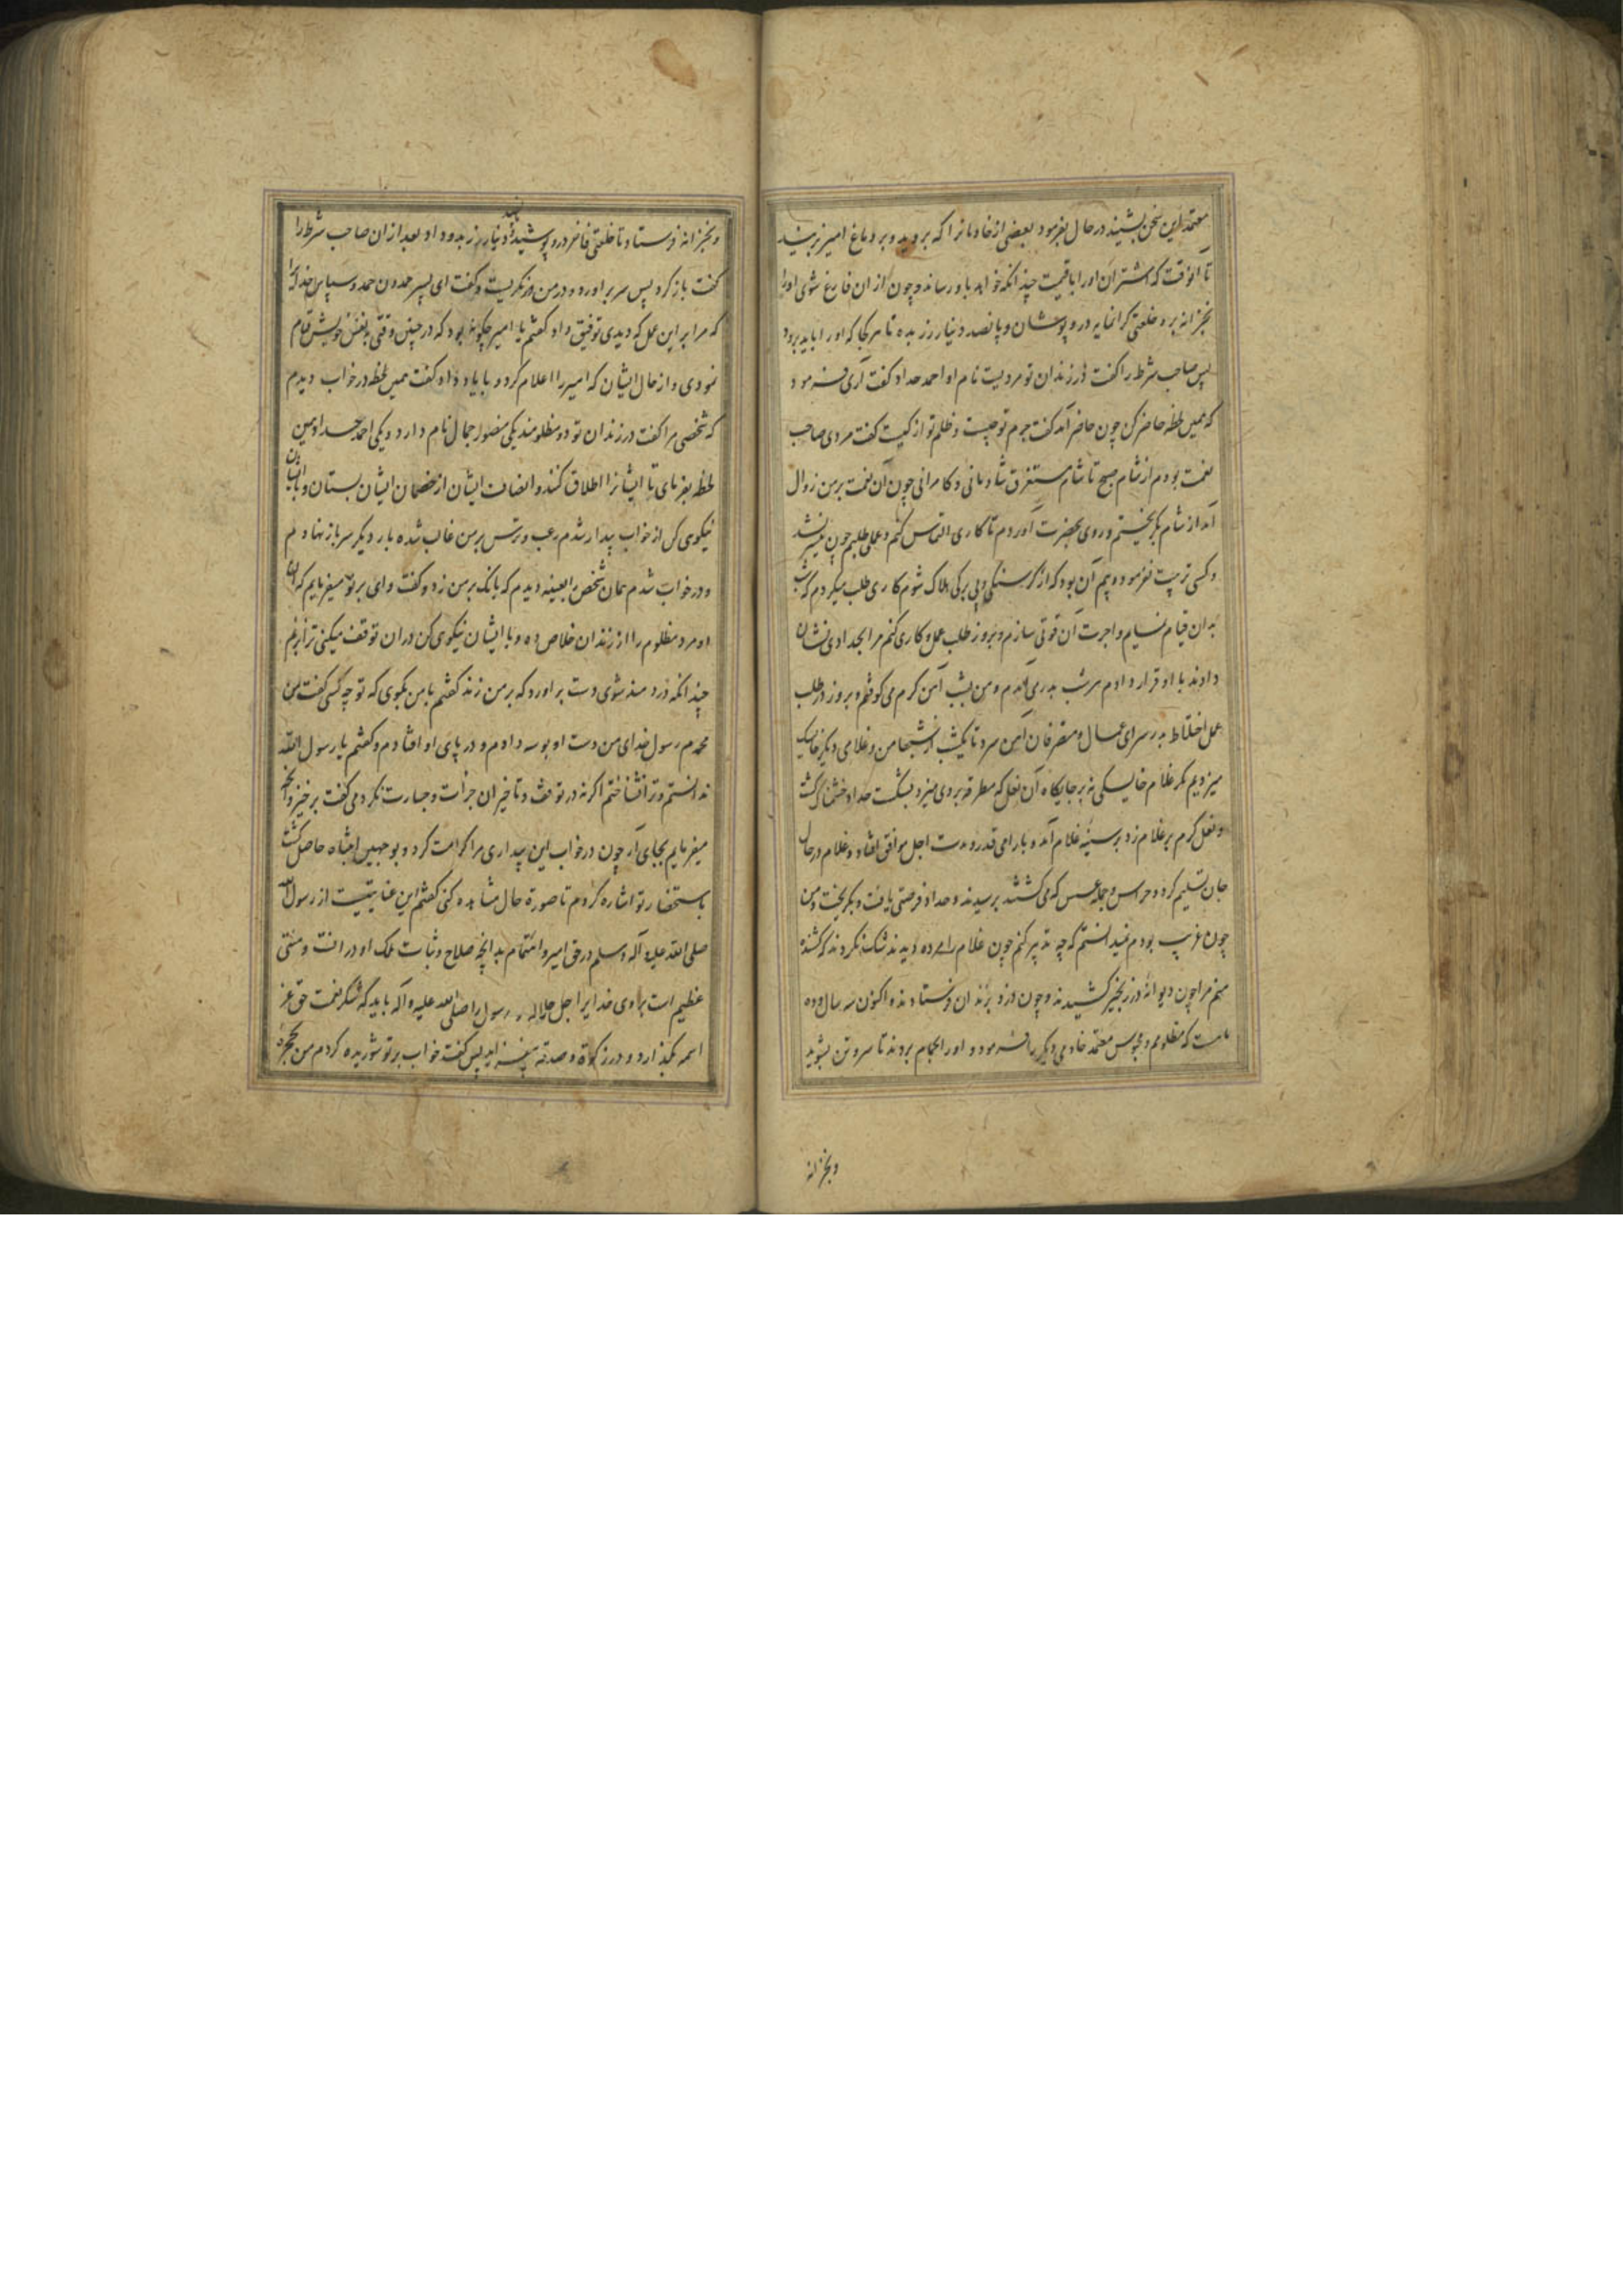 معتمد این سخن بشنید در حال بفرمود بعضی از خادمانرا که بروید و بر دماغ امیر بزنید
تا آنوقت که اشتران اورا یا قیمت چندانکه خواهد باو رسانند و چون از ان فارغ شوی اورا
بخزانه بره و خلعتی کرانمایه درو پوشان و پانصد دینار زر بده تا هر کجا که اورا باید برود
پس صاحب شرطه را کفت در زندان تو مردیست نام او احمد حداد کفت آری فرمود
که همین لحظه حاضر کن چون حاضر آمد کفت جرم تو چیست و ظلم تو از کیست کفت مردی صاحب
نعمت بودم از شام صبح تا شام مستغرق شادمانی و کامرانی چون آن نعمت بر من زوال
آمد از شام بکریختم و روی بحضرت آوردم تا کاری التماس کنم و عملی طلبم چون میسر نشد
و کسی تربیت نفرمود و بیم آن بود که از کرسنکی و بی برکی هلاک شوم کاری طلب میکردم که شب
بدان قیام نمایم و اجرت آن قوتی سازم و بروز طلب عمل و کاری کنم مرا بحدادی نشان
دادند با او قرار دادم هر شب بدرمی اندم و من بشب آهن کرم می کوفتم و بروز در طلب
عمل اختلاط بدر سرای عمال و متصرفان آهن سرد تا یکشب از شبها من و غلامی دیکر خایسک
میزدیم مکر غلام خایسکی نه بر جایکاه آن نعل که مطرقه بر وی میزد بشکست حداد خشمناک کشت
و نعل کرم بر غلام زد بر سینه غلام آمد و بار امی قدر و مدت اجل موافق افتاد و غلام در حال
جان تسلیم کرد و حراس و جماعه عسس که می کشتند برسیدند و حداد فرصتی یافت و بکریخت و من
چون غریب بودم نمیدانستم که چه تدبیر کنم چون غلام را مرده دیدند شک نکردند که کشنده
منم مرا چون دیوانه در زنجیر کشیدند و چون دزد بزندان فرستادند و اکنون سه سال و ده
ماهست که مظلومم و محبوس معتمد خادمی دیکر را فرمود و اورا بحمام بردند تا سر و تن بشوید
و بخزانه
و بخزانه فرستاد تا خلعتی فاخر درو پوشید و پانصد دینار زر بدو داد بعد از ان صاحب شرط را
کفت باز کرد پس سر براورد و در من نکریست و کفت ای پسر حمدون حمد و سپاس خدایرا
که مرا بر این عمل که دیدی توفیق داد کفتم یا امیر چکونه بود که در چنین وقتی بنفس خویش قیام
نمودی و از حال ایشان که امیر را اعلام کرد و با یاد داد کفت همین لحظه در خواب دیدم
که شخصی مرا کفت در زندان تو دو مظلومند یکی منصور جمال نام دارد و یکی احمد حداد همین
لحظه بفرمای تا ایشانرا اطلاق کنند و انصاف ایشان از خصمان ایشان بستان و با ایشان
نیکوی کن از خواب بیدار شدم رعب و ترس بر من غالب شده بار دیکر سر باز نهادم
و در خواب شدم همان شخص را بعینه دیدم که بانک بر من زد و کفت وای بر تو میفرمایم که ان
دو مرد مظلوم را از زندان خلاص ده و با ایشان نیکوی کن دران توقف میکنی ترا بزنم
چندانکه دردمند شوی دست براورد که بر من زند کفتم با من بکوی که تو چه کسی کفت من
محمدم رسول خدای من دست او بوسه دادم و در پای او افتادم و کفتم یا رسول الله
ندانستم و ترا نشناختم اکرنه در توقف و تاخیر ان جرأت و جسارت نکردمی کفت برخیز و انچه
میفرمایم بجای آر چون در خواب این بیداری مرا کرامت کرد و بوجهی انتباه حاصل کشت
باستحضار تو اشاره کردم تا صورة حال مشاهده کنی کفتم این عنایتیست از رسول الله
صلی الله علیه و آله و سلم در حق امیر و اهتمام بدانچه صلاح و ثبات ملک او در انست و منتی
عظیم است براوی خدایرا جل جلاله و رسول را صلی الله علیه و آله باید که شکر نعمت حق عز
اسمه بکذارد و در زکوة و صدقه بیفزاید پس کفت خواب بر تو شوریده کردم من بحجره